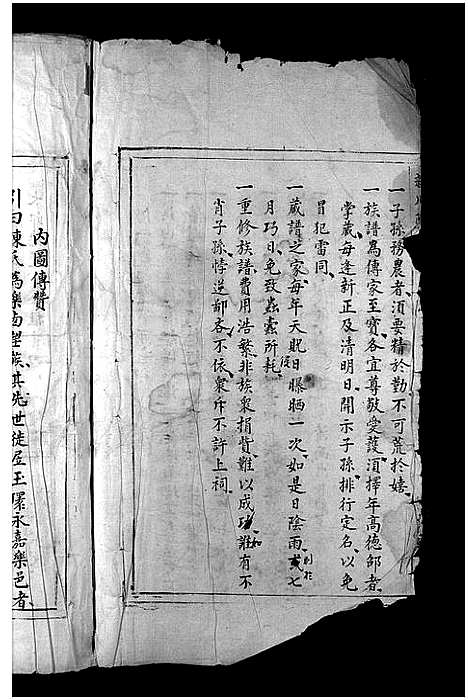 一子孫務農者、須要精於勤不可荒於嬉、
一族譜為傳家至寶、各宜尊敬愛護、須擇年高德卲者、
掌藏每逢新正及清明日、開示子孫、排行定名、以免
冒犯雷同、
一藏譜之家每年天貺日從曝晒一次、如是日陰雨或別於七
月巧日、免致蟲蠹所耗、
一重修族譜費用浩繁非族衆捐貲難以成功、如誰有不
肖子孫悖逆鄙吝不依衆斥不許上祠、
内圖傳贊
引曰陳氏為樂邑望族、其先世徒居玉環永嘉樂邑者、